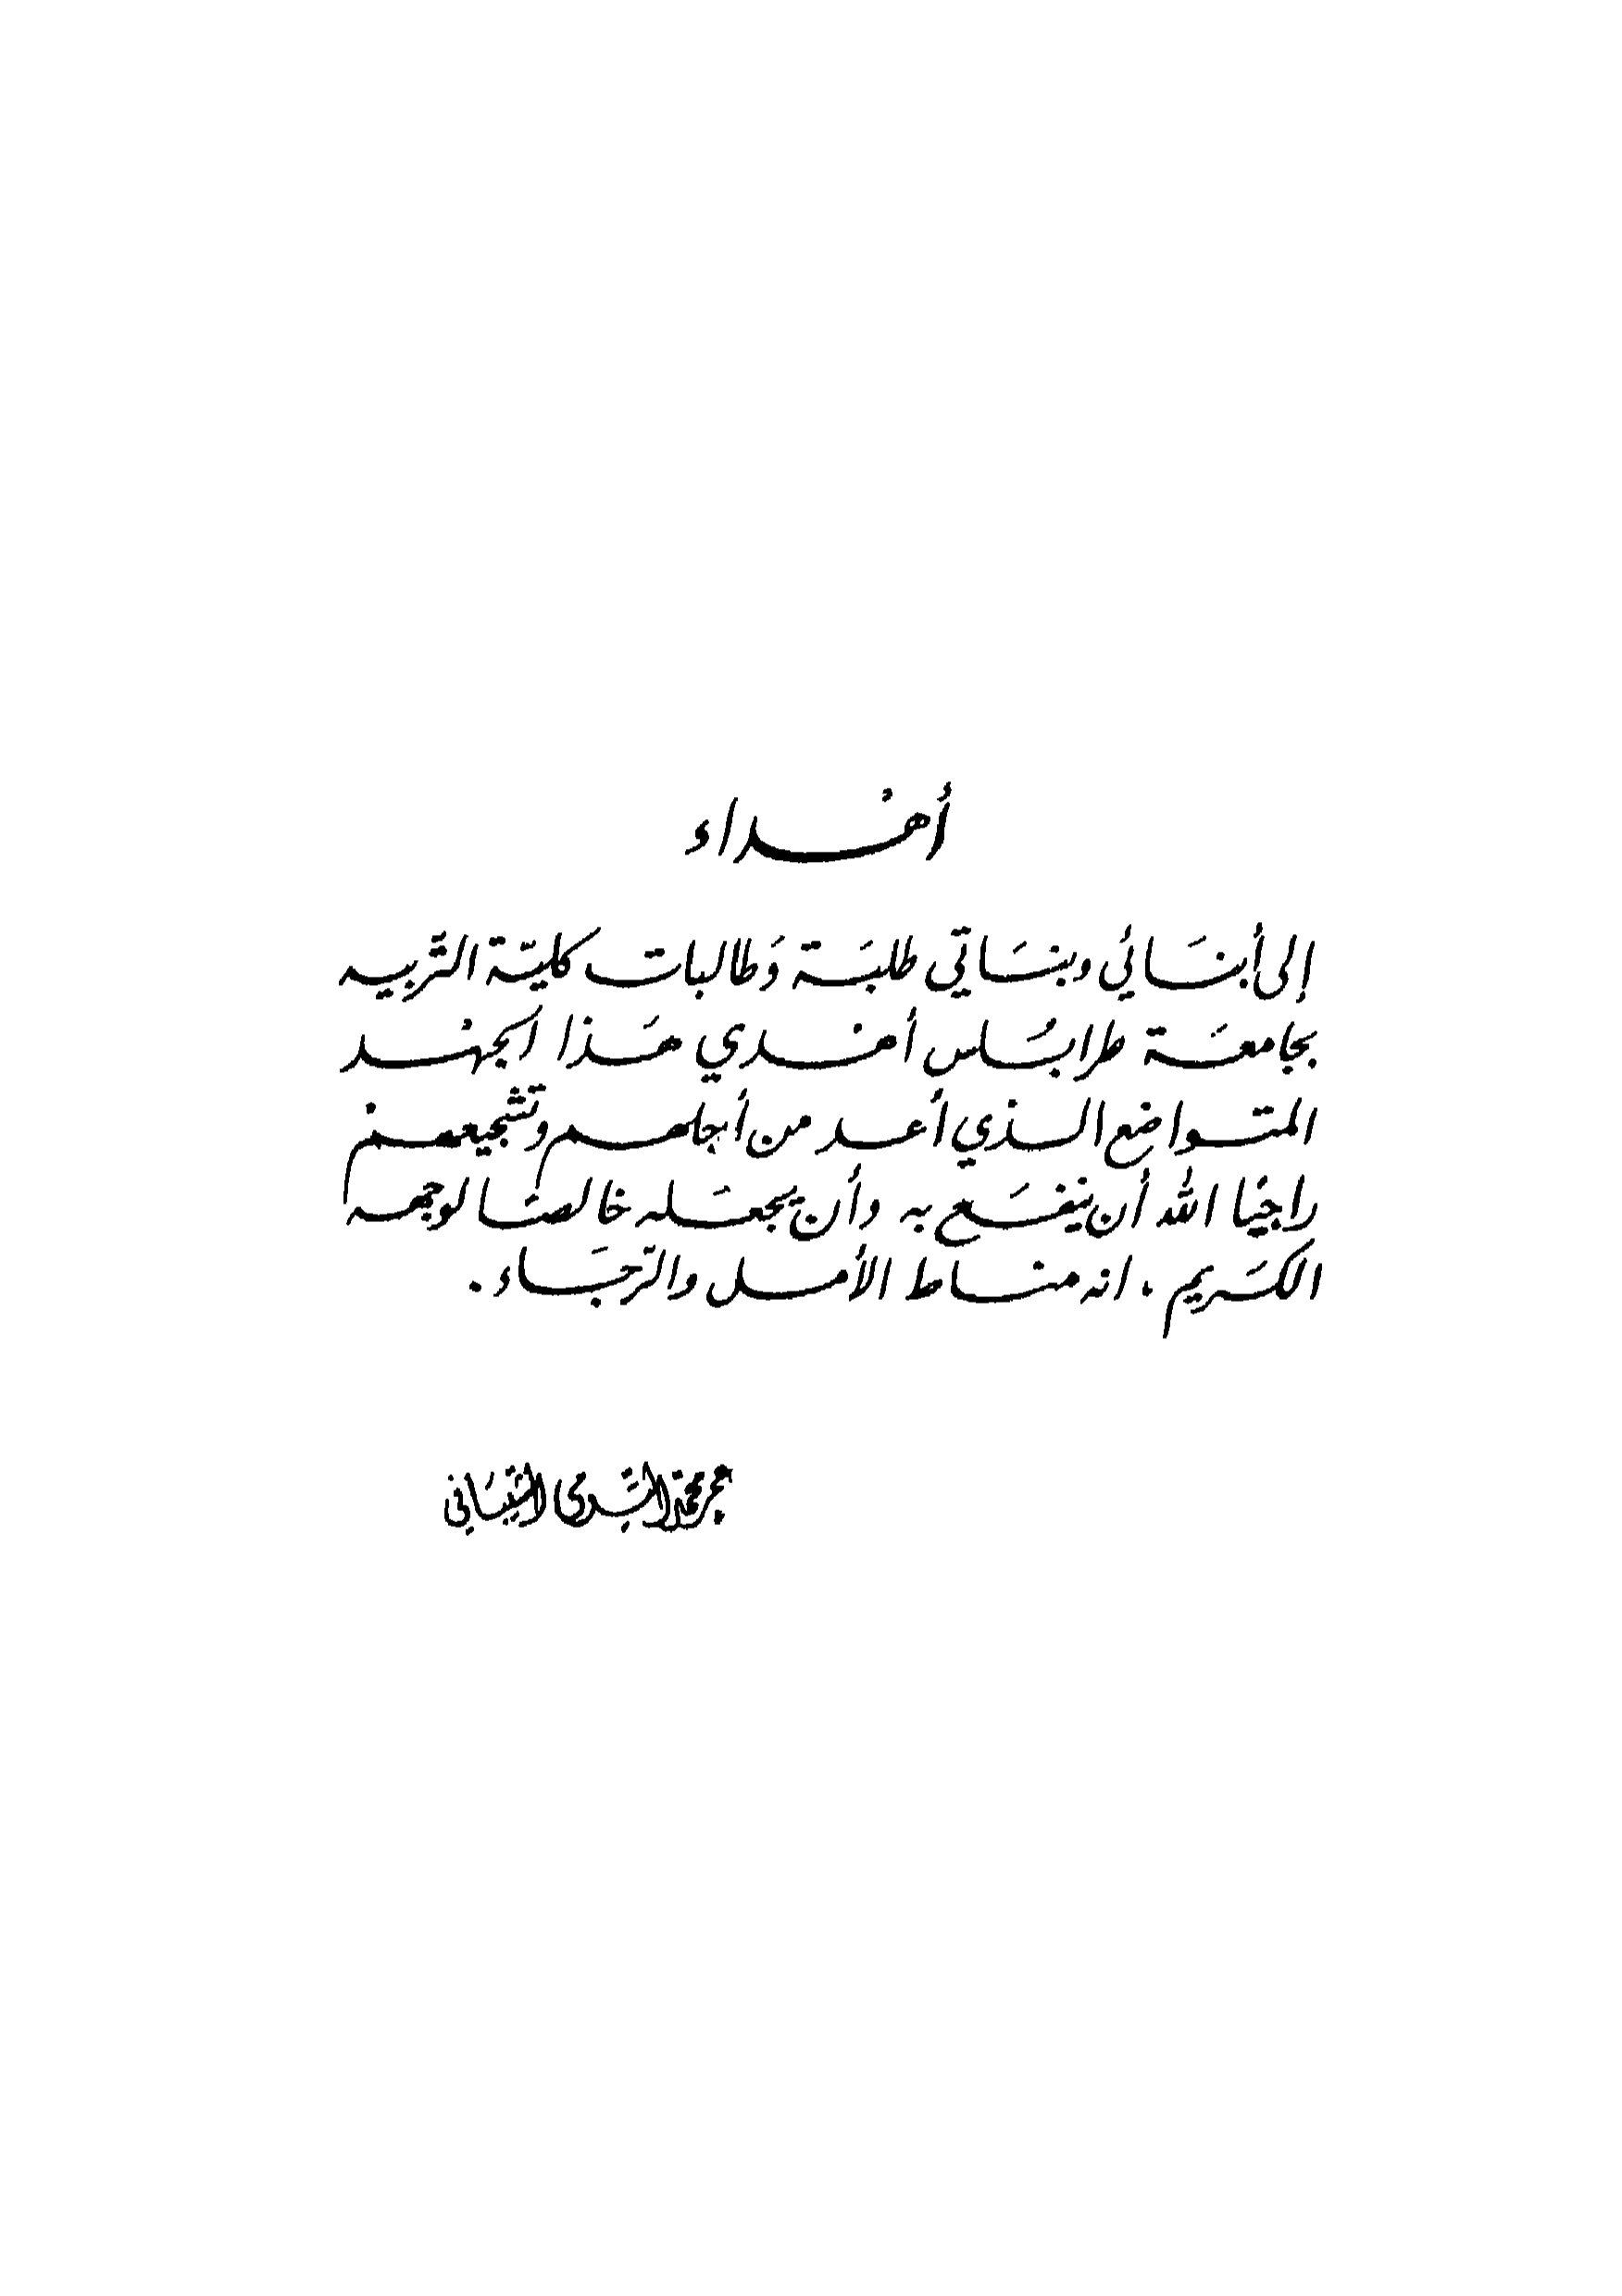 أهداء
إلى أبنَائي وبنَاتي طلبَة وَطالبات كليّة التَّربيه
بجامعَة طرابُلس أهدي هَذا الجهْد
المتواضع الذي أعد من أجلهم وتشجيعهم
راجيًا الله أن ينفَع به وأن يجعَله خَالصًا لوجهه
الكَريم . انه مناط الأمل والرّجَاء .
عمر محمّد التّومي الشّيبَاني